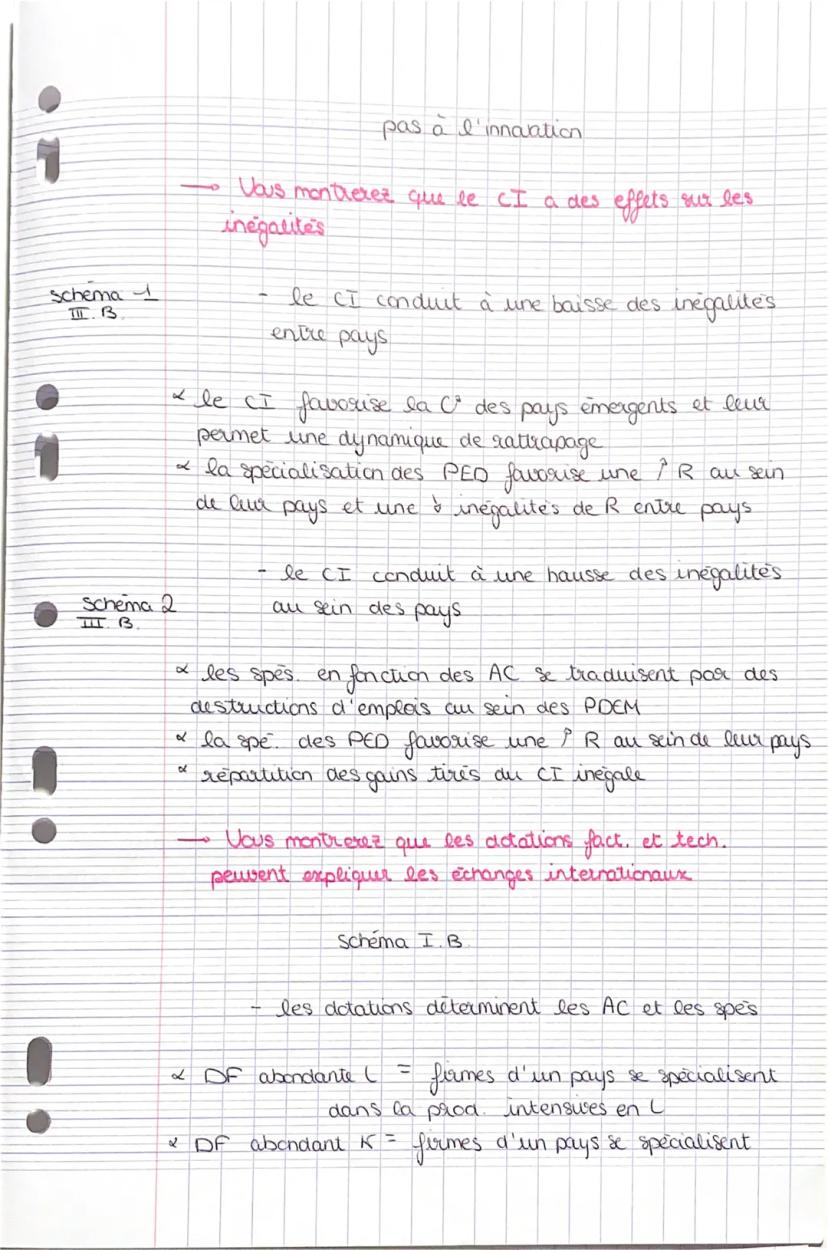 pas à l'innovation
→ Vous montrerez que le CI a des effets sur les
inégalités
schéma 1
III. B.
- le CI conduit à une baisse des inégalités
entre pays
∝ le CI favorise la C° des pays émergents et leur
permet une dynamique de rattrapage
∝ la spécialisation des PED favorise une ↗ R au sein
de leur pays et une ↘ inégalités de R entre pays
- le CI conduit à une hausse des inégalités
schéma 2
III. B.
au sein des pays
∝ les spés. en fonction des AC se traduisent par des
destructions d'emplois au sein des PDEM
∝ la spé. des PED favorise une ↗ R au sein de leur pays
∝ répartition des gains tirés du CI inégale
→ Vous montrerez que les dotations fact. et tech.
peuvent expliquer les échanges internationaux
Schéma I. B.
- les dotations déterminent les AC et les spés
∝ DF abondante L = firmes d'un pays se spécialisent
dans la prod. intensives en L
∝ DF abondant K = firmes d'un pays se spécialisent